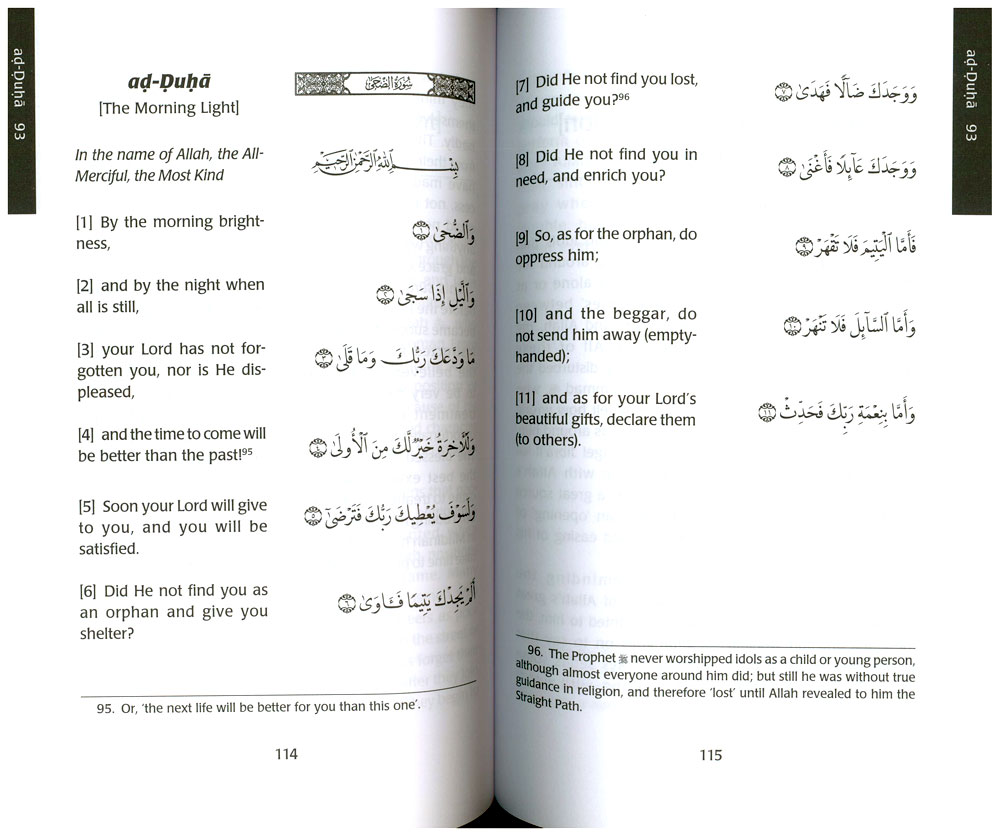 aḍ-Ḍuḥā 93
aḍ-Ḍuḥā
سُورَةُ الضُّحَىٰ
[The Morning Light]
In the name of Allah, the All-
Merciful, the Most Kind
بِسْمِ ٱللَّهِ ٱلرَّحْمَٰنِ ٱلرَّحِيمِ
[1] By the morning bright-
ness,
وَٱلضُّحَىٰ ١
[2] and by the night when
all is still,
وَٱلَّيْلِ إِذَا سَجَىٰ ٢
[3] your Lord has not for-
gotten you, nor is He dis-
pleased,
مَا وَدَّعَكَ رَبُّكَ وَمَا قَلَىٰ ٣
[4] and the time to come will
be better than the past!95
وَلَلْأَخِرَةُ خَيْرٌ لَّكَ مِنَ ٱلْأُولَىٰ ٤
[5] Soon your Lord will give
to you, and you will be
satisfied.
وَلَسَوْفَ يُعْطِيكَ رَبُّكَ فَتَرْضَىٰٓ ٥
[6] Did He not find you as
an orphan and give you
shelter?
أَلَمْ يَجِدْكَ يَتِيمًا فَـَٔاوَىٰ ٦
95. Or, ‘the next life will be better for you than this one’.
114
aḍ-Ḍuḥā 93
[7] Did He not find you lost,
and guide you?96
وَوَجَدَكَ ضَآلًّا فَهَدَىٰ ٧
[8] Did He not find you in
need, and enrich you?
وَوَجَدَكَ عَآئِلًا فَأَغْنَىٰ ٨
[9] So, as for the orphan, do
oppress him;
فَأَمَّا ٱلْيَتِيمَ فَلَا تَقْهَرْ ٩
[10] and the beggar, do
not send him away (empty-
handed);
وَأَمَّا ٱلسَّآئِلَ فَلَا تَنْهَرْ ١٠
[11] and as for your Lord’s
beautiful gifts, declare them
(to others).
وَأَمَّا بِنِعْمَةِ رَبِّكَ فَحَدِّثْ ١١
96. The Prophet ﷺ never worshipped idols as a child or young person,
although almost everyone around him did; but still he was without true
guidance in religion, and therefore ‘lost’ until Allah revealed to him the
Straight Path.
115